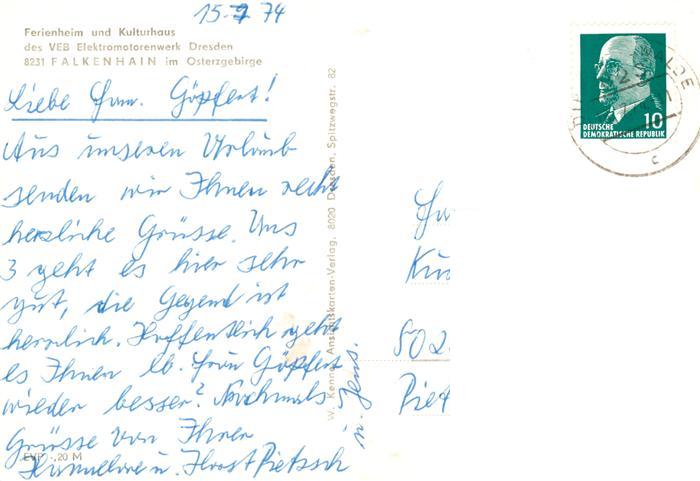 15.7.74
Ferienheim und Kulturhaus
des VEB Elektromotorenwerk Dresden
8231 FALKENHAIN im Osterzgebirge
Liebe Fam. Göpfert!
Aus unseren Urlaub
senden wir Ihnen recht
herzliche Grüsse. Uns
3 geht es hier sehr
gut, die Gegend ist
herrlich. Hoffentlich geht
es Ihnen lb. Frau Göpfert
wieder besser? Nochmals
Grüsse von Ihnen
Hannelore u. Horst Pietzsch
u. Jens.
EVP -,20 M
W. Kenner, Ansichtskarten-Verlag, 8020 Dresden, Spitzwegstr. 82
DEUTSCHE
DEMOKRATISCHE REPUBLIK
10
c
802